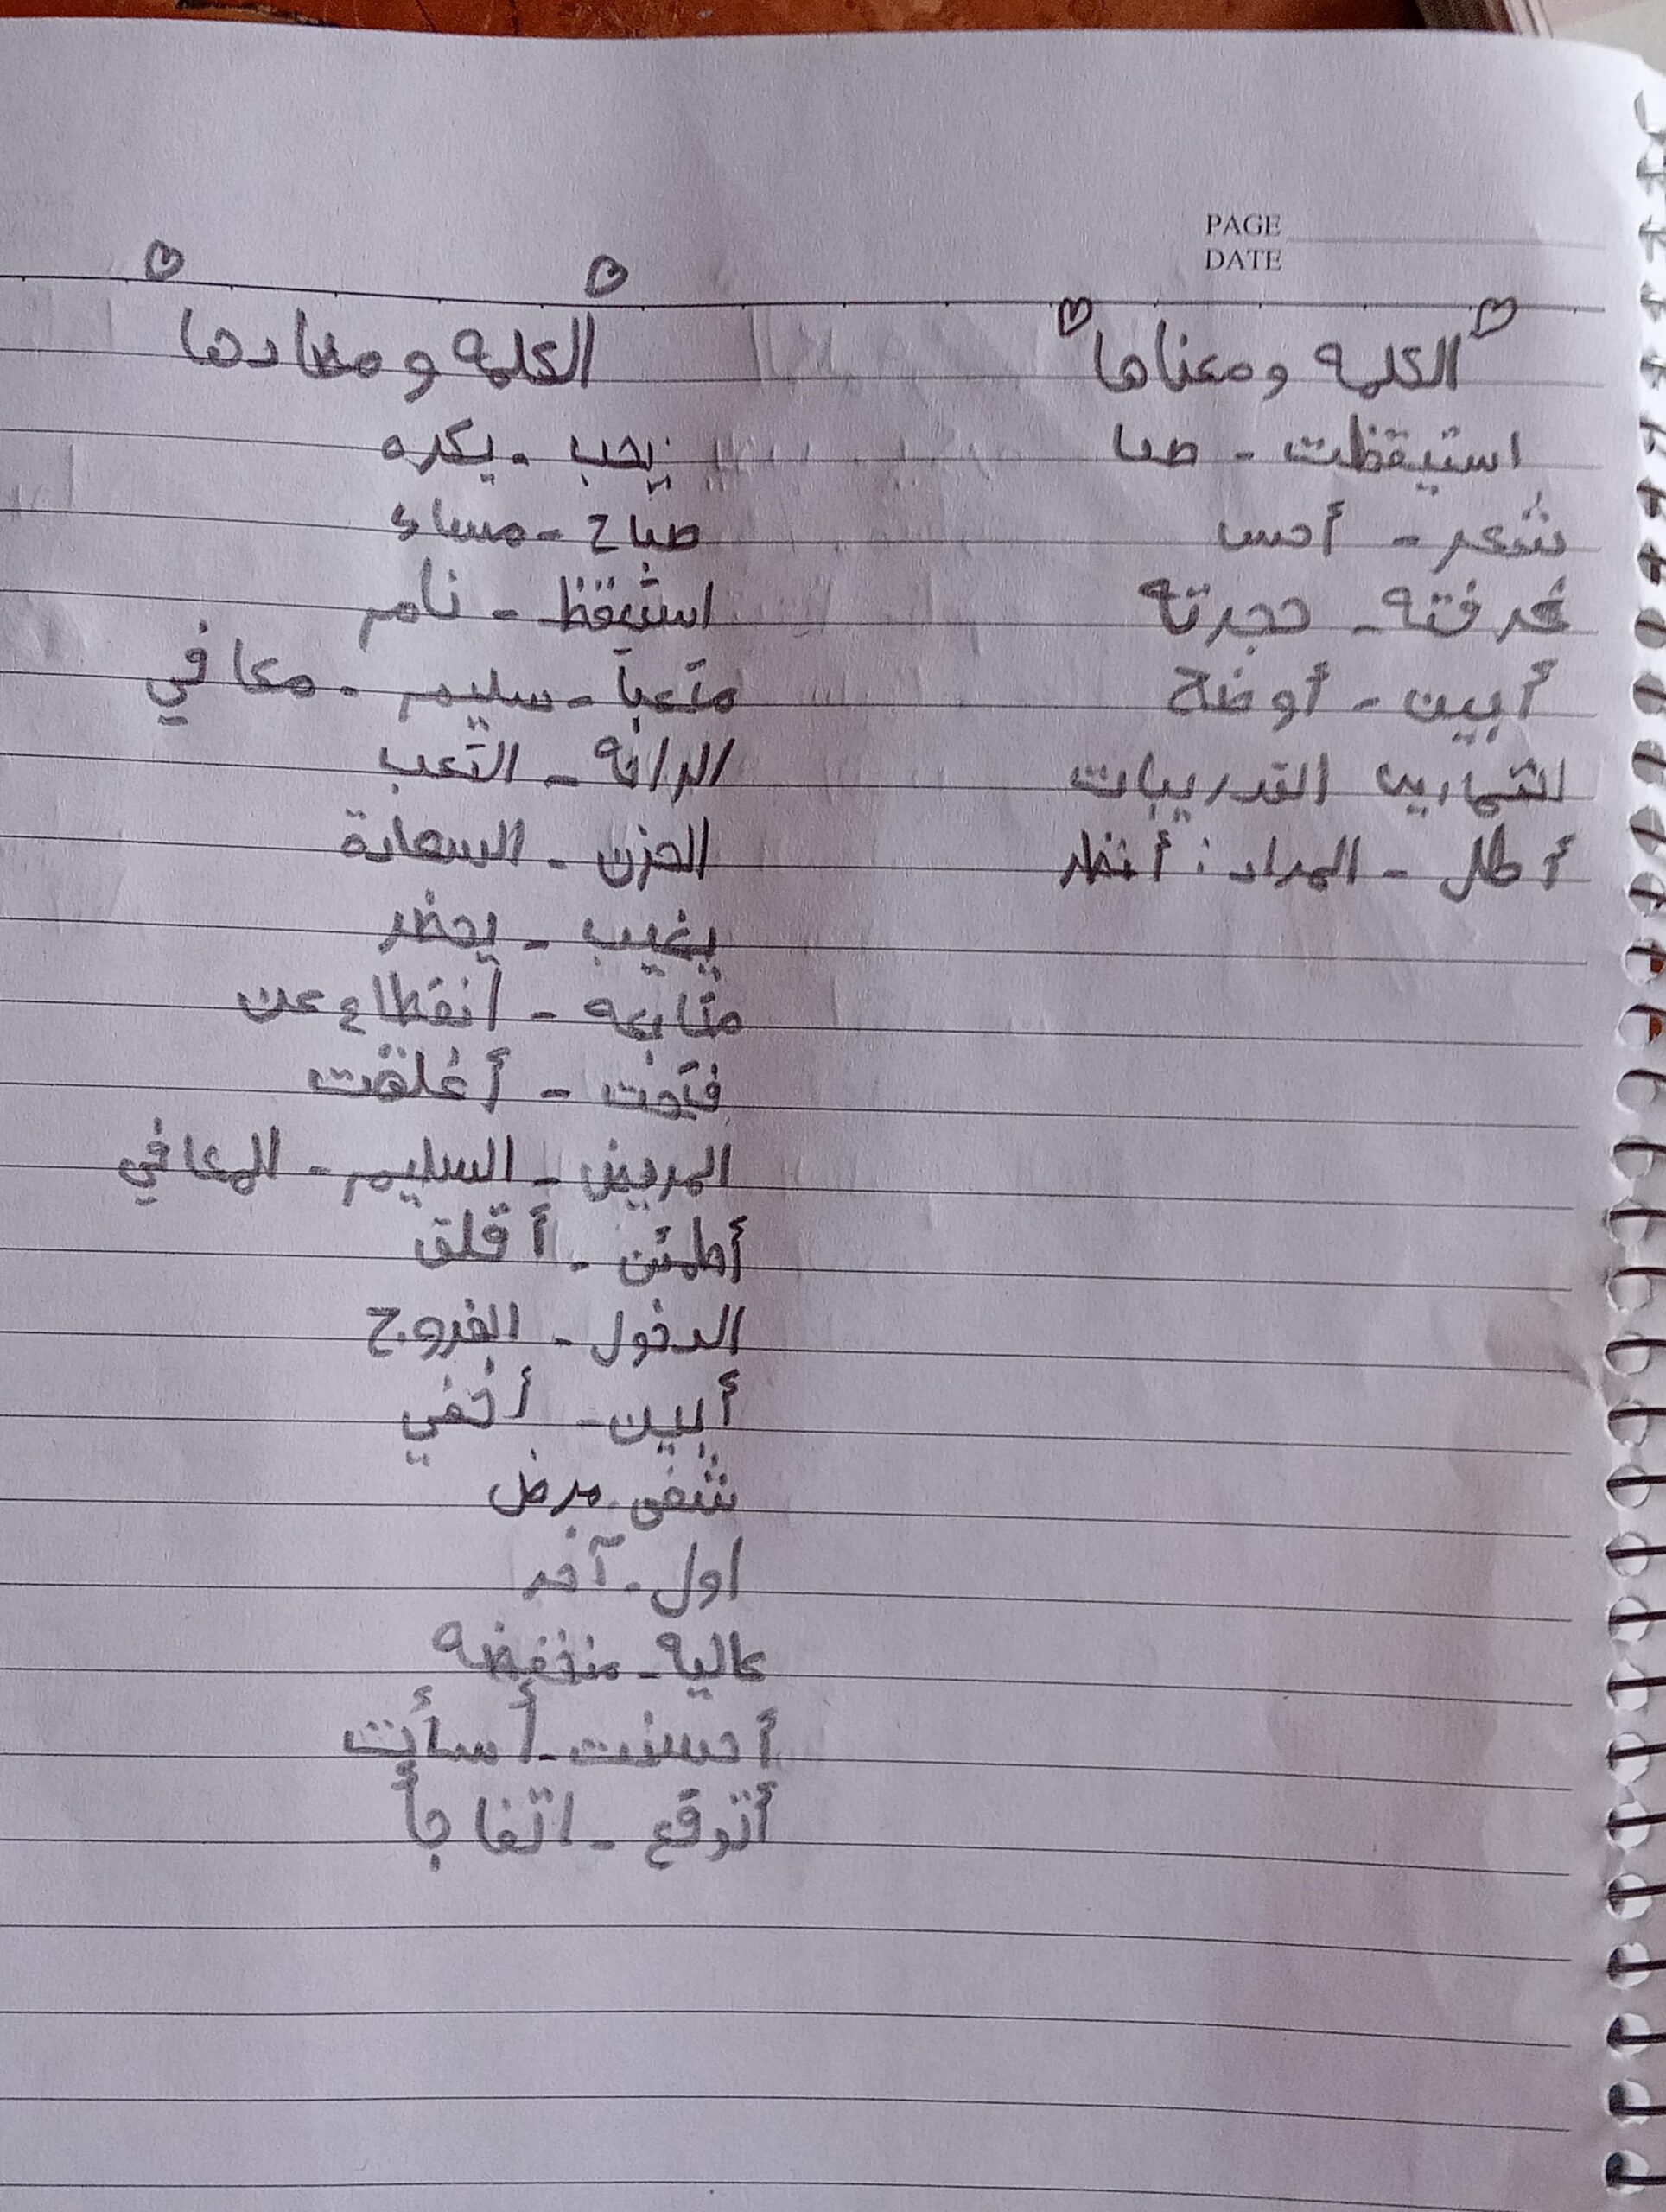 PAGE
DATE
الكلمه ومعناها
استيقظت - صحا
شعر - أحس
غرفته - حجرته
أبين - أوضح
التمارين التدريبات
أطل - المراد : أنظر
الكلمه و مضادها
يحب - يكره
صباح - مساء
استيقظ - نام
متعبا - سليم - معافي
الراحه - التعب
الحزن - السعادة
يغيب - يحضر
متابعه - انقطاع عن
فتحت - أغلقت
المريض - السليم - المعافي
أطمئن - أقلق
الدخول - الخروج
أبين - أخفي
شفى - مرض
اول - آخر
عاليه - منخفضه
أحسنت - أسأت
أتوقع - اتفاجأ